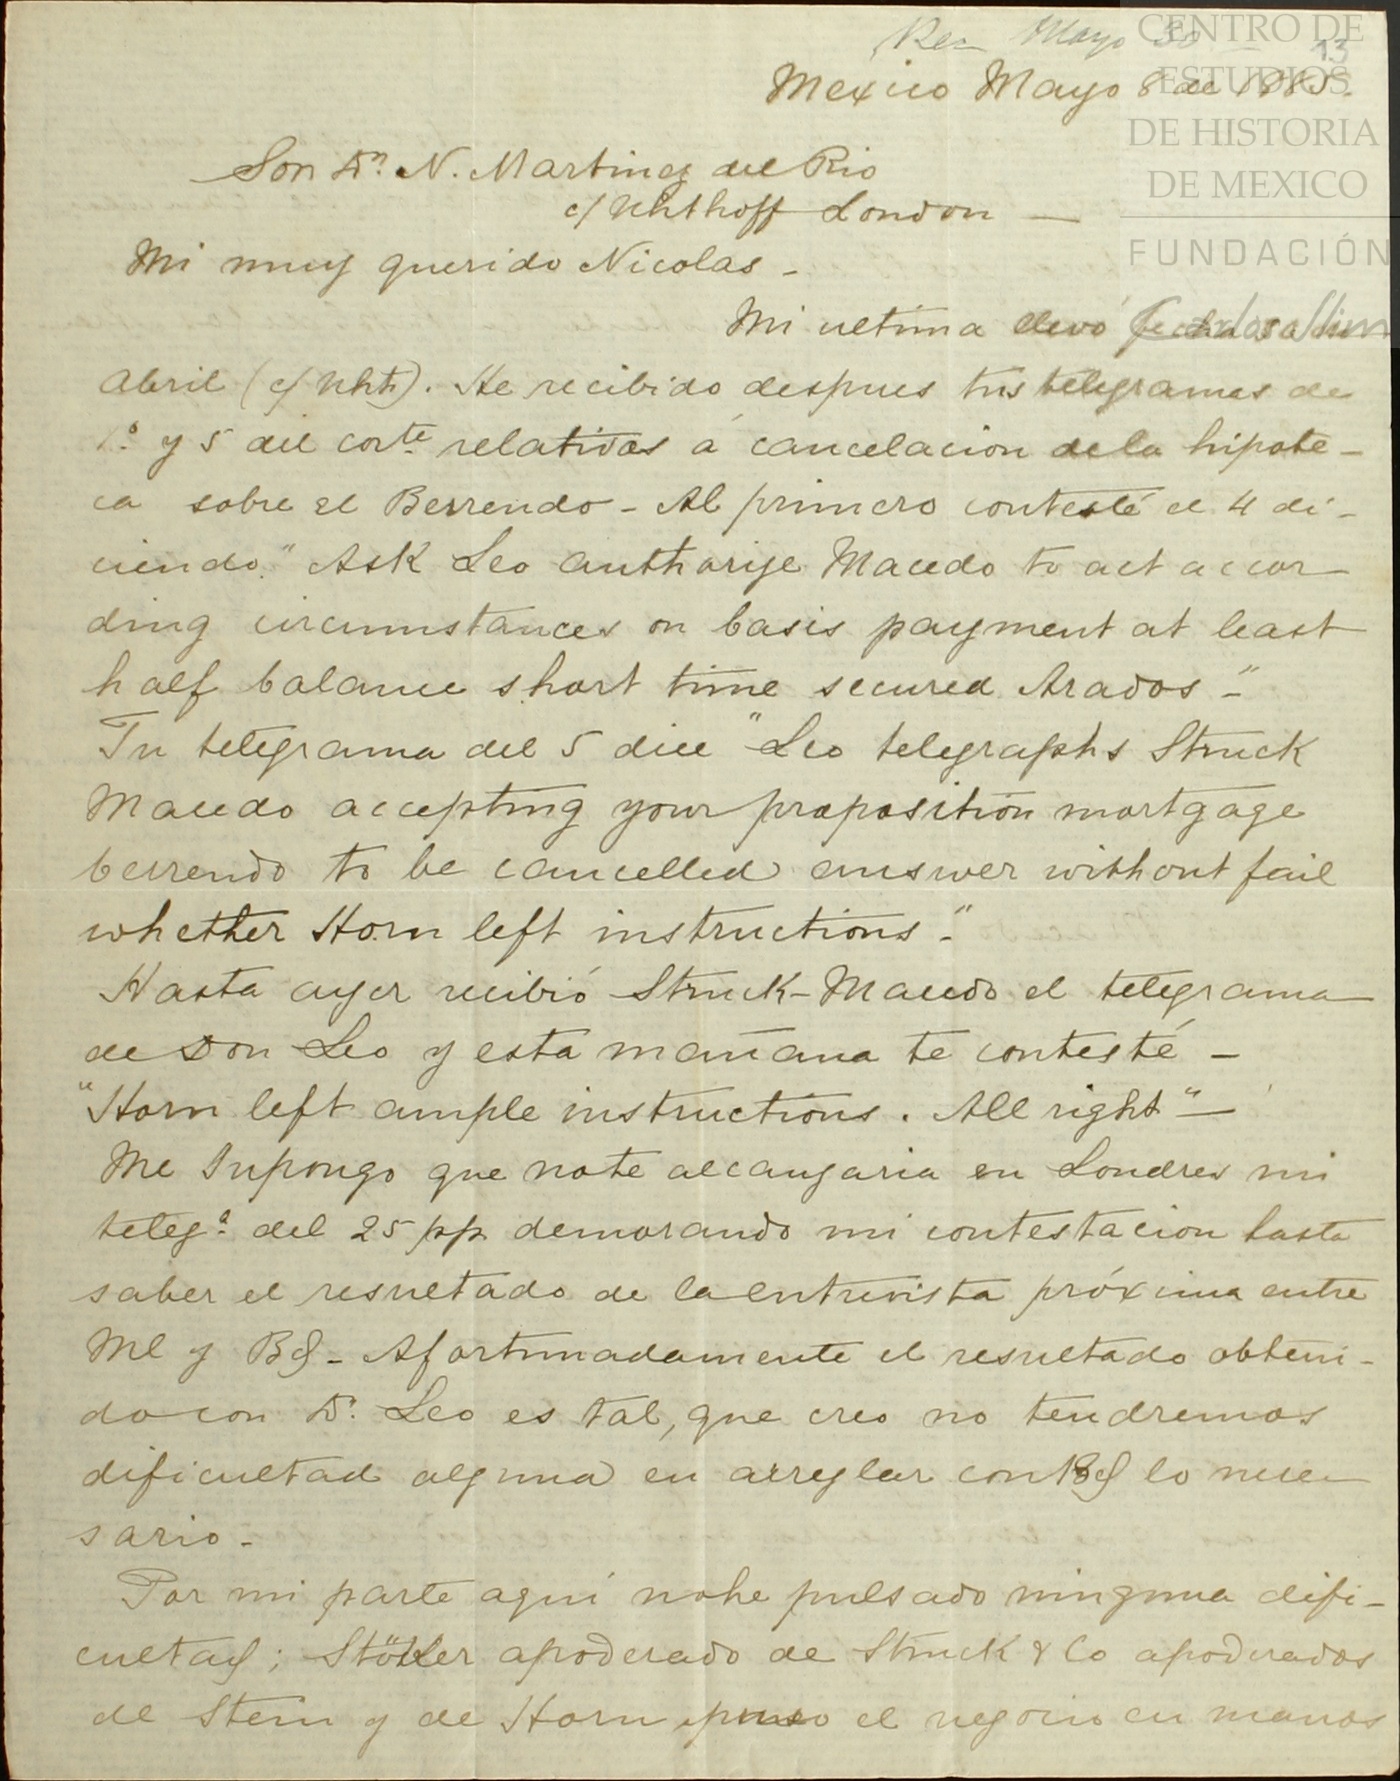 Rec Mayo 30
13
Mexico Mayo 8 de 1885.
CENTRO DE
ESTUDIOS
DE HISTORIA
DE MEXICO
FUNDACIÓN
Carlos Slim
Sor. Dn. N. Martinez del Rio
c/ Uhthoff London —
Mi muy querido Nicolas -
Mi ultima llevó fecha
Abril (c/ Uhtf). He recibido despues tus telegramas de
1.º y 5 del corte. relativos á cancelacion de la hipote-
ca sobre el Berrendo - Al primero contesté el 4 di-
ciendo. "Ask Leo authorize Macedo to act accor
ding circumstances on basis payment at least
half balance short time secured Arados" -
Tu telegrama del 5 dice "Leo telegraphs Struck
Macedo accepting your proposition mortgage
berrendo to be cancelled answer without fail
whether Horn left instructions."
Hasta ayer recibió Struck-Macedo el telegrama
de Don Leo y esta mañana te contesté -
"Horn left ample instructions. All right" —
Me supongo que no te alcanzaria en Londres mi
telega. del 25 pp. demorando mi contestacion hasta
saber el resultado de la entrevista próxima entre
Ml y Bf - Afortunadamente el resultado obteni-
do con Dn. Leo es tal, que creo no tendremos
dificultad alguna en arreglar con Bf lo nece
sario -
Por mi parte aquí no he pulsado ninguna difi-
cultad; Stöker apoderado de Struck & Co apoderados
de Stein y de Horn puso el negocio en manos